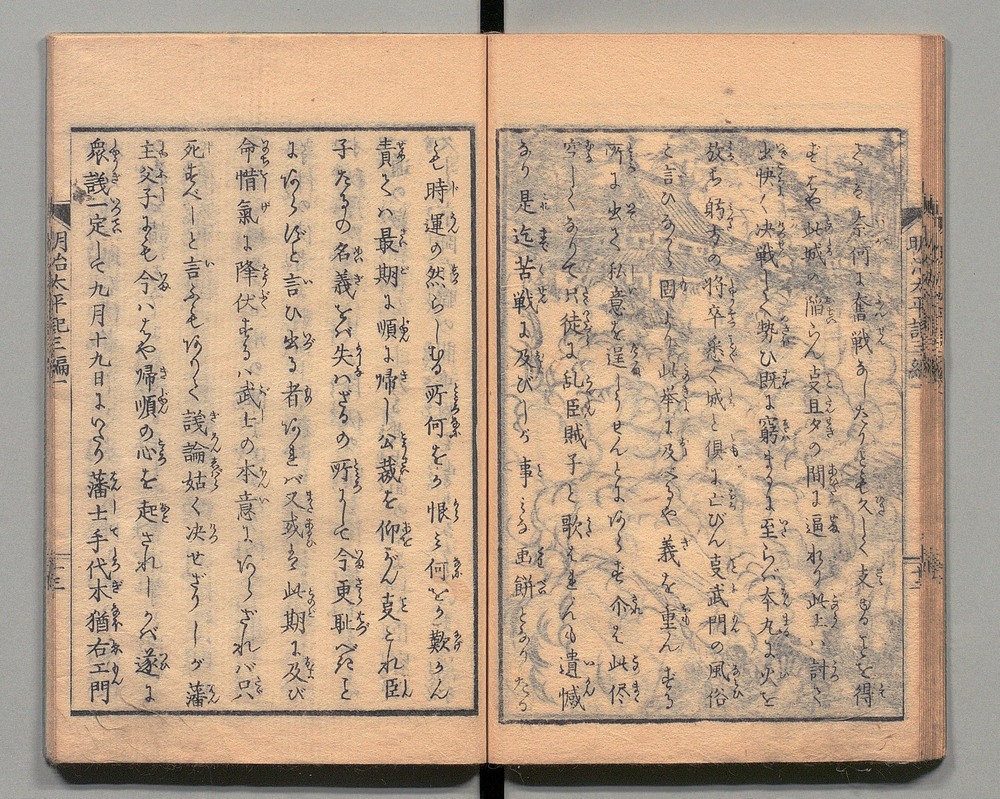 とも奈何に奮戦なしたりとも久しく支ゆることを得
ずはや此城の陥らん㕝旦夕の間に逼れり此上ハ計て
出快く決戦して勢ひ既に窮まるに至らバ本丸に火を
放ち躬方の将卒悉く城と倶に亡びん㕝武門の風俗
と言ひながら固より此挙に及べるや義を重んずる
所に出て私意を逞ふせんとにあらず尓を此侭
空しくなりて只徒に乱臣賊子と歌はれんも遺憾
なり是迄苦戦に及びしが事みな画餅となりたる
も時運の然らしむる所何をか恨み何をか歎かん
責てハ最期に順に帰し公裁を仰がん㕝これ臣
子たるの名義をバ失ハざるの所にして今更耻べきこと
にあらずと言ひ出る者あれバ又或ひは此期に及び
命惜氣に降伏するハ武士の本意にあらざれバ只
死すべしと言ふもありて議論姑く决せざりしが藩
主父子にも今ハはや帰順の心を起されしかバ遂に
衆議一定して九月十九日にいたり藩士手代木猶右エ門
明治太平記三編一
十三